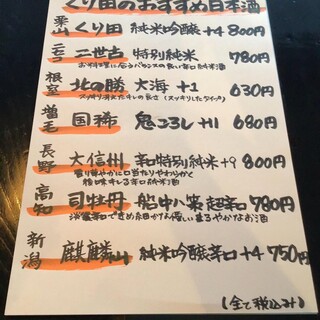 くり田のおすすめ日本酒
栗山 くり田 純米吟醸 +4 800円
ニセコ 二世古 特別純米 780円
お料理に合うバランスの良い辛口純米酒
根室 北の勝 大海 +1 630円
スッキリ冴えたキレの良さ(スッキリしたタイプ)
増毛 国稀 鬼ころし +11 680円
長野 大信州 辛口特別純米 +9 800円
香り華やかに口当たりやわらかく
旨味キレる辛口純米酒
高知 司牡丹 船中八策 超辛口 780円
淡麗辛口できめ細かな優しい まろやかなお酒
新潟 麒麟山 純米吟醸辛口 +4 750円
(全て税込み)